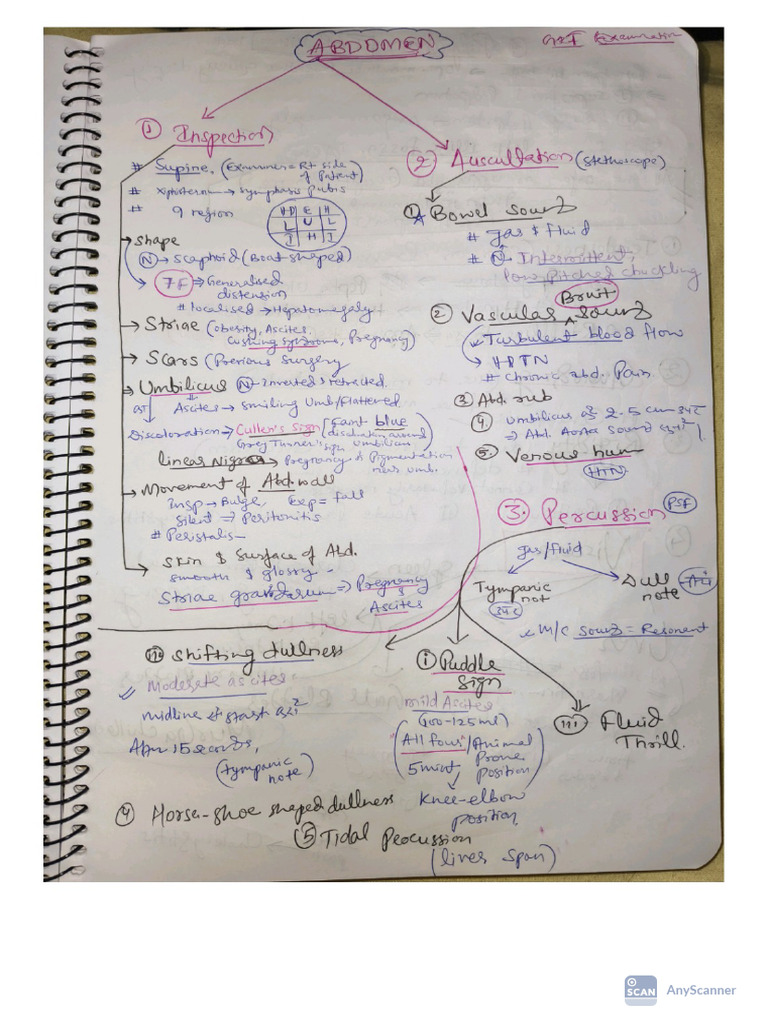 ABDOMEN
GIT Examination
① Inspection
# Supine, (Examiner = Rt side of Patient)
# xiphisternum → symphasis pubis
# 9 region
HP E H
L U L
I H I
→ shape
Ⓝ → scaphoid (Boat shaped)
7F → Generalised distension
# localised → Hepatomegaly
→ Striae (obesity, Ascites,
Cushing syndrome, Pregnancy)
→ Scars (Previous surgery
→ Umbilicus Ⓝ → Inverted & retracted.
Ascites → smiling Umb/flattened
Discoloration → Cullen's sign (faint blue
discoloration around
Umbilicus
Grey Turner's sign
linear Nigra → Pregnancy & Pigmentation
near umb.
→ Movement of Abd. wall
Insp → Bulge, Exp = fall
silent → Peritonitis
# Peristalis-
→ skin & surface of Abd.
smooth & glossy -
Striae gravidarum → Pregnancy
& Ascites
② Auscultation (stethoscope)
① Bowel sound
# gas & fluid
# Ⓝ- Intermittent,
low pitched chuckling
② Vascular Bruit sound
→ Turbulent blood flow
→ HPTN
# chronic abd. Pain.
③ Abd. rub
④ umbilicus से 2.5 cm उपर
⇒ Abd. Aorta sound
⑤ Venous-hum
HTN
③. Percussion
gas/fluid
Tympanic not
उपर
Dull note
M/C sound = Resonent
(i) Puddle Sign
mild Ascites
(100-125ml)
(All fours/Animal
Prone position)
5 mint
Knee-elbow position
(ii) Shifting dullness
Moderate ascites
midline से start करते
After 15 seconds,
(tympanic note)
(iii) Fluid Thrill.
④ Horse-shoe shaped dullness
⑤ Tidal Percussion
(liver span)
SCAN
AnyScanner